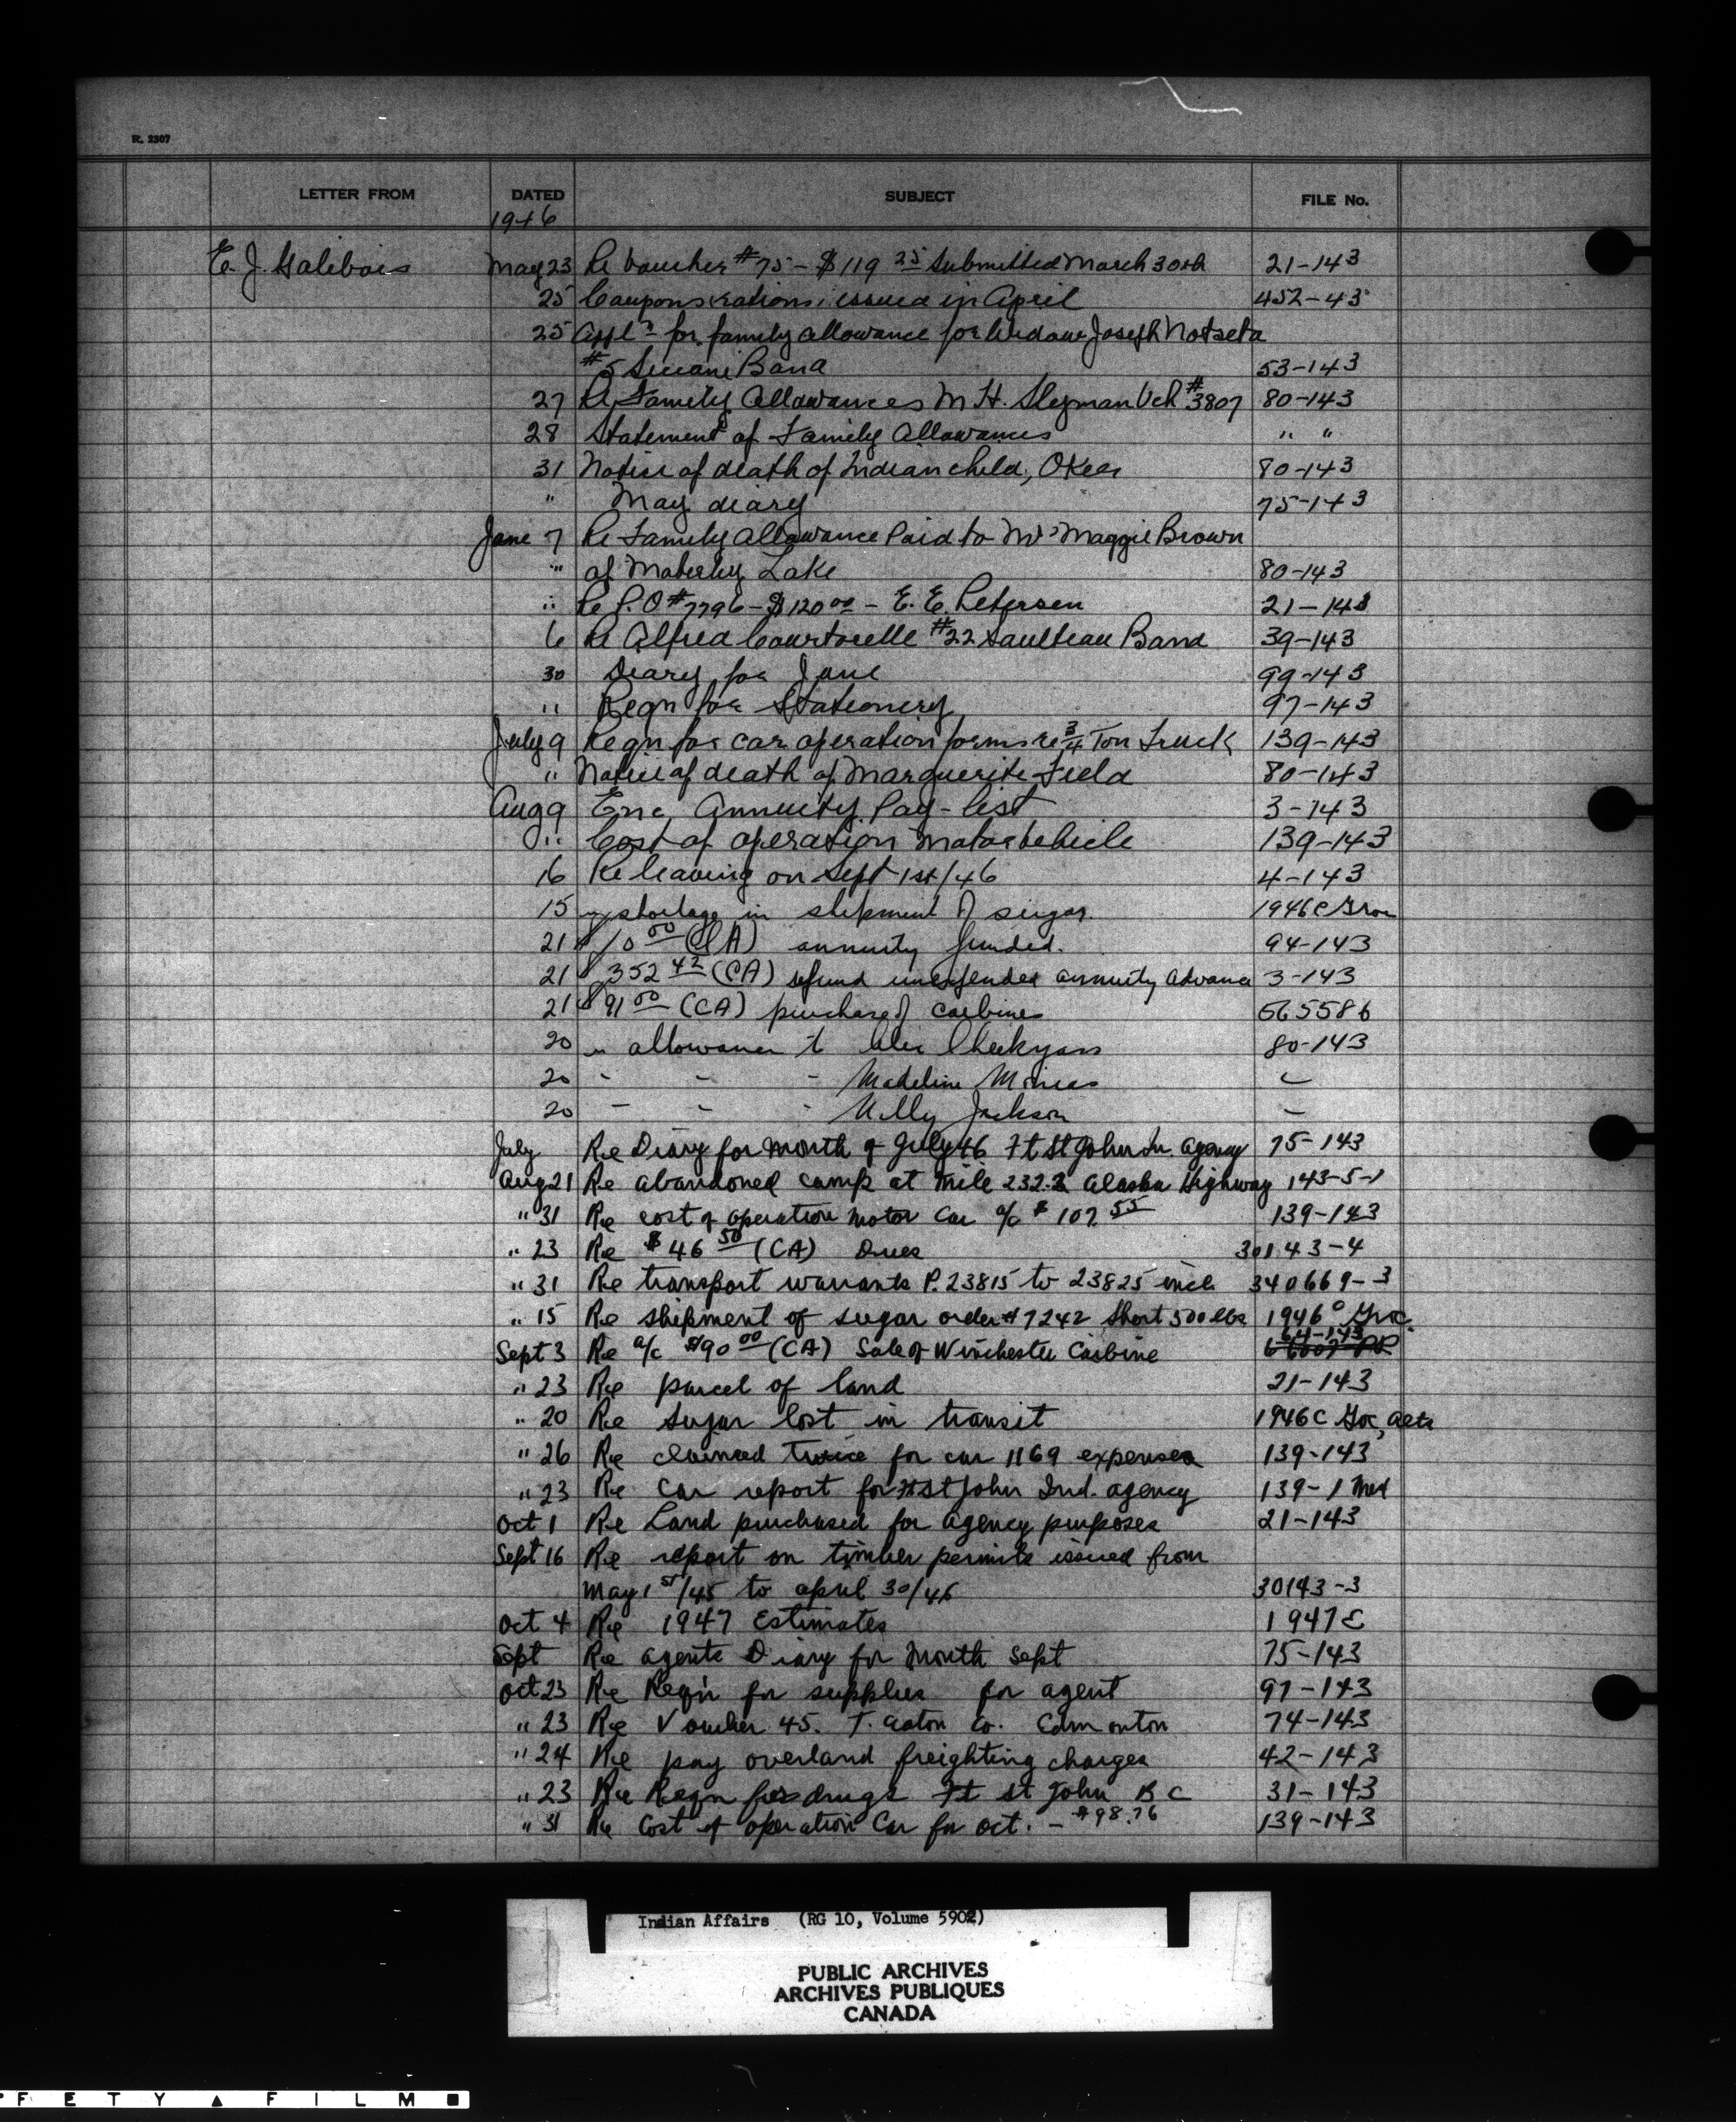 R. 2307
LETTER FROM DATED SUBJECT FILE No.
1946
E. J. Galibois May 23 Re Voucher #75 - $119 25 Submitted March 30th 21-143
25 Coupons rations issued in April 452-43
25 Appln for family allowance for Widow Joseph Notseta
#5 Siccani Band 53-143
27 Re Family Allowances M H. Slyman Vch #3807 80-143
28 Statement of Family Allowances " "
31 Notice of death of Indian child, Oker 80-143
" May diary 75-143
June 7 Re Family Allowance Paid to Mrs Maggie Brown
" of Moberley Lake 80-143
" Re P.O #7796 - $120 00 - E. E. Petersen 21-143
6 Re Alfred Courtorelle #22 Saulteau Band 39-143
30 Diary for June 99-143
" Reqn for Stationery 97-143
July 9 Reqn for car operation forms re 3/4 Ton Truck 139-143
" Notice of death of Marguerite Field 80-143
Aug 9 Enc Annuity Pay-list 3-143
" Cost of operation Motor Vehicle 139-143
16 Re leaving on Sept 1st/46 4-143
15 shortage in shipment of sugar 1946C Groc
21 $10 00 (CA) annuity funded. 94-143
21 $352 42 (CA) refund unexpended annuity advance 3-143
21 $91 00 (CA) purchase of carbines 565586
20 " allowance to Alec Cheekyass 80-143
20 - - - Madeline Mineas -
20 - - - Nelly Jackson -
July Re Diary for month of July 46 Ft St John In. Agency 75-143
Aug 21 Re abandoned camp at Mile 232.2 Alaska Highway 143-5-1
" 31 Re cost of operation Motor Car a/c $107 55 139-143
" 23 Re $46 50 (CA) Dues 30143-4
" 31 Re transport warrants P. 23815 to 23825 incl. 340669-3
" 15 Re shipment of sugar order #7242 Short 500 lbs 1946 C Groc.
64-143
Sept 3 Re a/c $90 00 (CA) Sale of Winchester Carbine
" 23 Re parcel of land 21-143
" 20 Re sugar lost in transit 1946C Groc, acts
" 26 Re claimed twice for car 1169 expenses 139-143
" 23 Re Car report for Ft St John Ind. agency 139-1 Med
Oct 1 Re Land purchased for agency purposes 21-143
Sept 16 Re report on timber permits issued from
May 1st/45 to april 30/46 30143-3
Oct 4 Re 1947 Estimates 1947E
Sept Re agents Diary for Month Sept 75-143
Oct 23 Re Reqn for supplies for agent 97-143
" 23 Re Voucher 45. T. Eaton Co. Edmonton 74-143
" 24 Re pay overland freighting charges 42-143
" 23 Re Reqn for drugs Ft St John B C 31-143
" 31 Re Cost of operation Car for Oct. - $98.76 139-143
Indian Affairs (RG 10, Volume 5902)
PUBLIC ARCHIVES
ARCHIVES PUBLIQUES
CANADA
FETY ▲ FILM ■